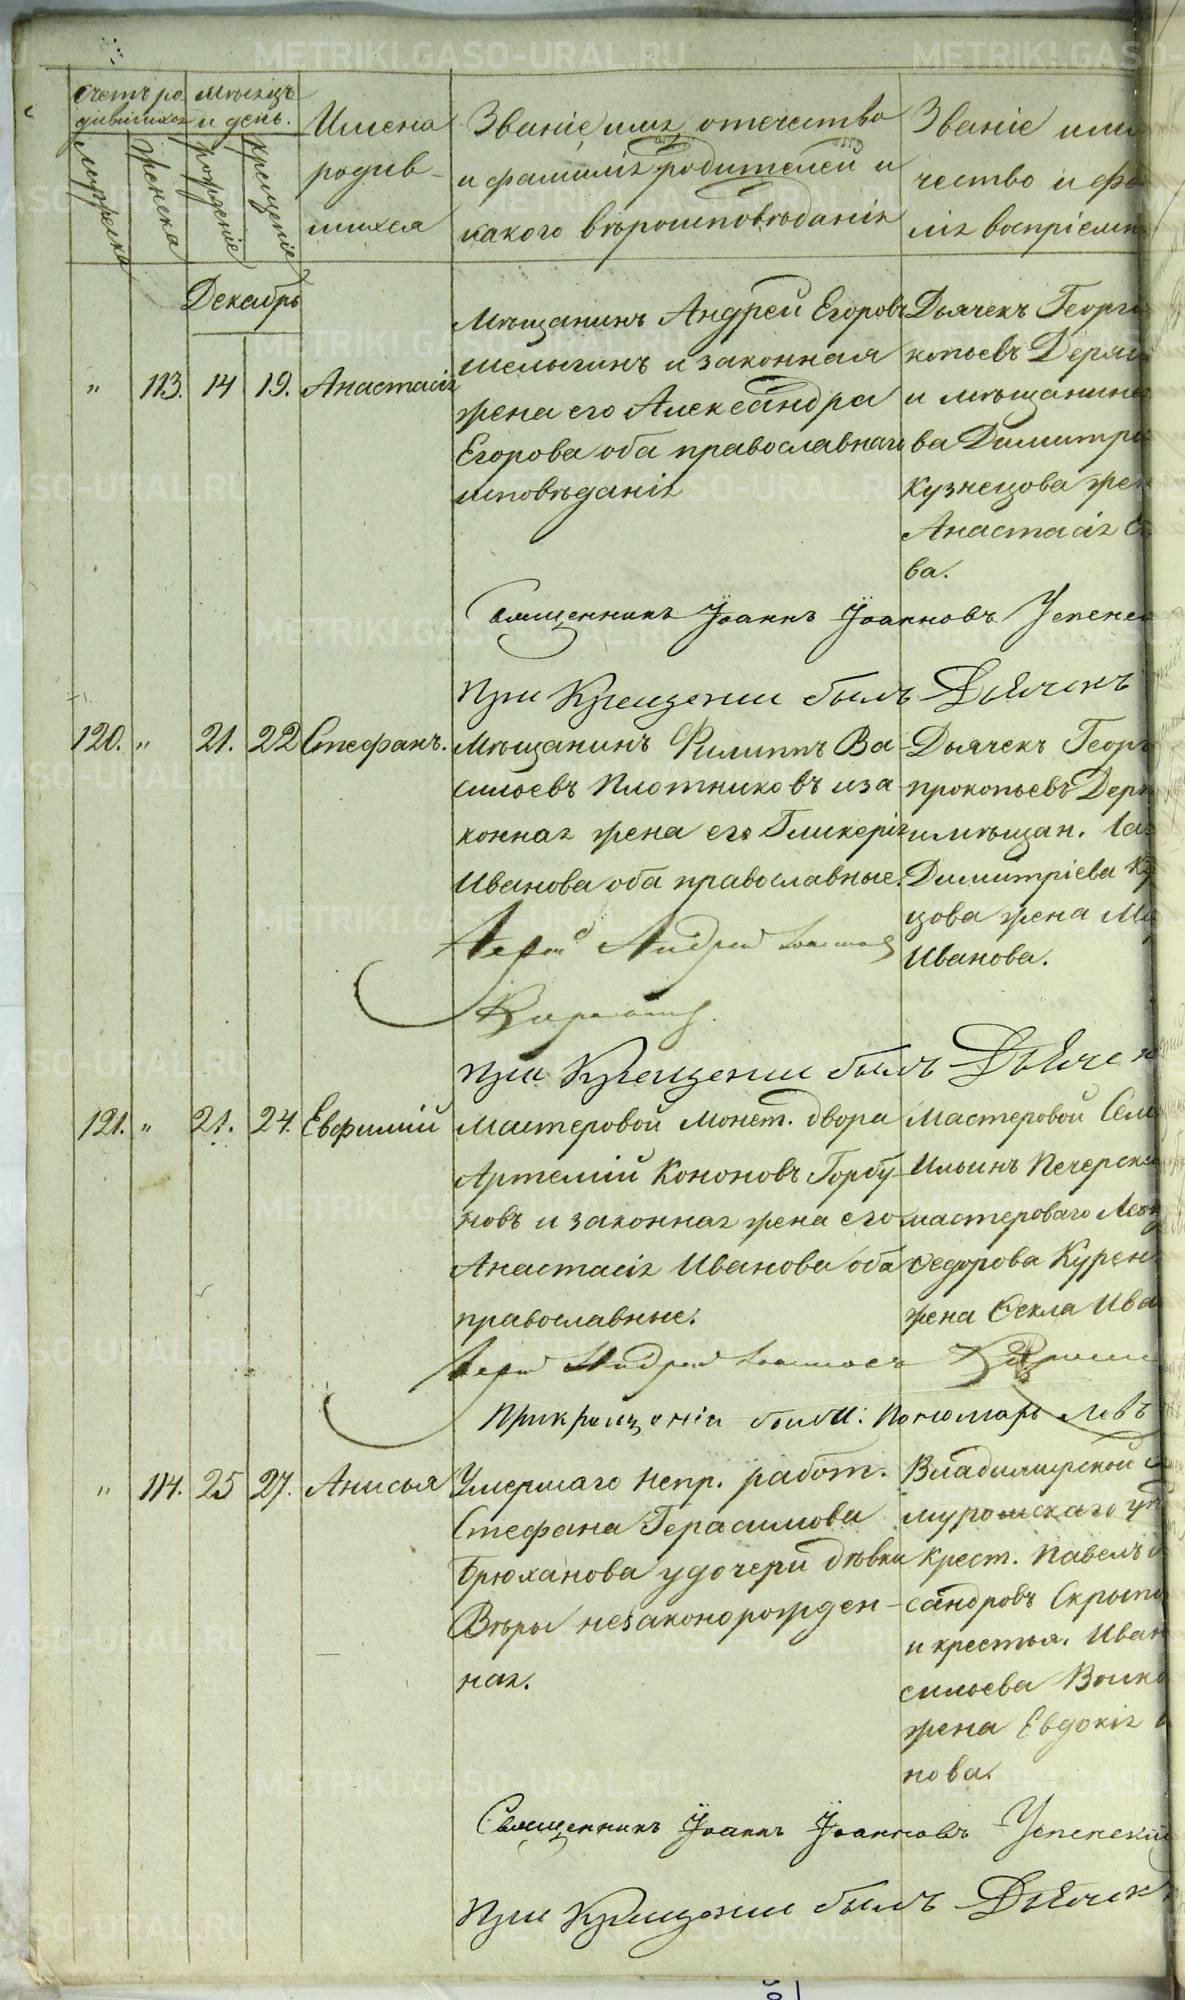 Счетъ ро
дившихся
мѣсяцъ
и день.
мужеска
Женска
рожденіе
крещеніе
Имена
родив-
шихся
Званіе имя, отечество
и фамилія родителей и
какого вѣроисповѣданія
Званіе имя
чество и фа
лія воспріемн
Декабрь
" 113. 14 19. Анастасія
Мѣщанинъ Андрей Егоровъ
Шелыгинъ и законная
жена его Александра
Егорова оба православнаго
исповѣданія
Дьячекъ Георгі
копьевъ Деряг
и мѣщанина
ва Димитрі
Кузнецова жен
Анастасія
ва.
Священникъ Іоаннъ Іоанновъ Успенск
При Крещении былъ Дьячекъ
120. " 21. 22 Стефанъ.
Мѣщанинъ Филиппъ Ва-
сильевъ Плотниковъ и за
конная жена его Гликерія
Иванова оба православные.
Дьячекъ Георг
прокопьевъ Деря
и мѣщан.
Димитріева Ку
цова жена Ма
Иванова.
Іерей Андрей
При Крещении былъ Дьяче
121. " 21. 24. Евфимій
Мастеровой Монет. двора
Артемій Кононовъ Горбу-
новъ и законная жена его
Анастасія Иванова оба
православные.
Мастеровой Сем
Ильинъ Печерск
мастероваго Леон
Ѳедорова Курен
жена Ѳекла Ива
Іерей Андрей
При крещеніи были: Пономарь Левъ
" 114. 25 27. Анисья
Умершаго непр. работ.
Стефана Герасимова
Брюханова у дочери дѣвки
Вѣры незаконорожден-
ная.
Владимирской
муромскаго уѣ
Крест. Павелъ
сандровъ Скрып
и крестья. Иван
сильева Волко
жена Евдокія
нова.
Священникъ Іоаннъ Іоанновъ Успенскій
При Крещении былъ Дьячек
METRIKI.GASO-URAL.RU